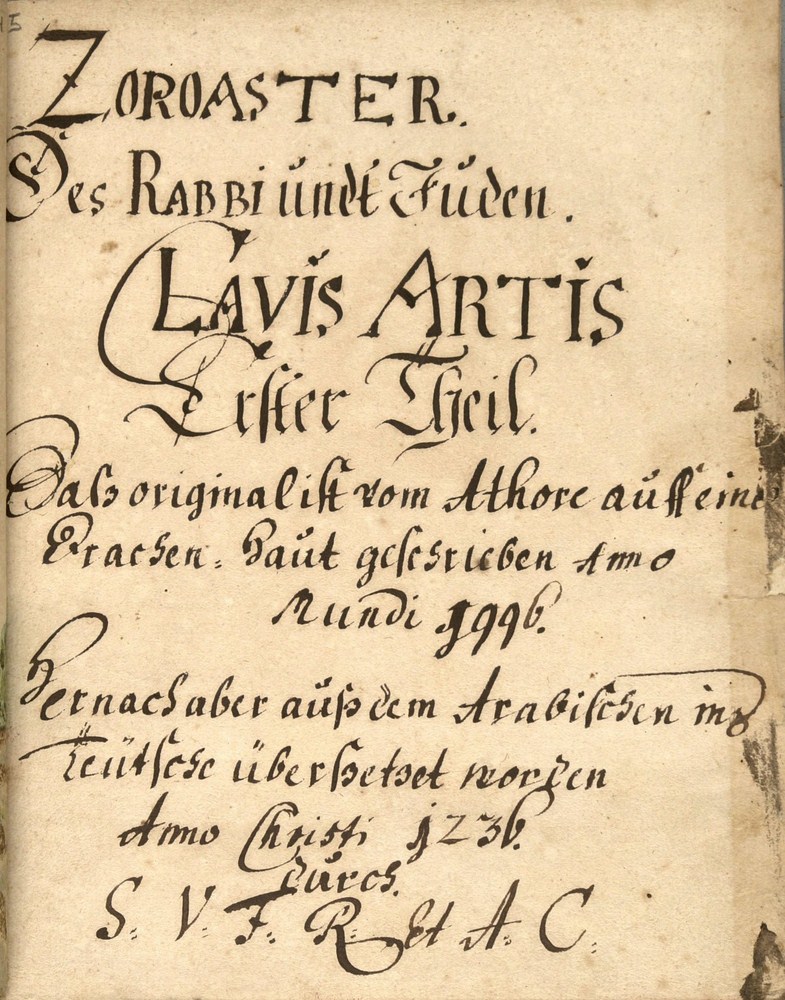 15
ZOROASTER.
Des RABBI ŭndt Jŭden.
CLAVIS ARTIS
Erster Theil.
Daß original ist vom Athore aŭff eine
Drachen = Haŭt geschrieben Anno
Mundi 1996.
Hernach aber aŭß dem Arabischen ins
Teütsche überßetzet worden
Anno Christi 1236.
dŭrch.
S. V. F. R. Et A. C.